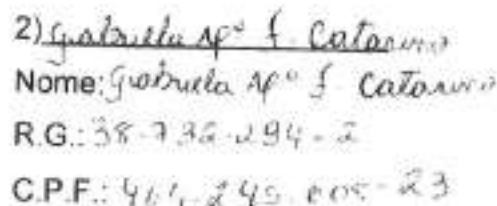 2) Gabriela Apª f. Catarino
Nome: Gabriela Apª f. Catarino
R.G.: 38-732-294-2
C.P.F.: